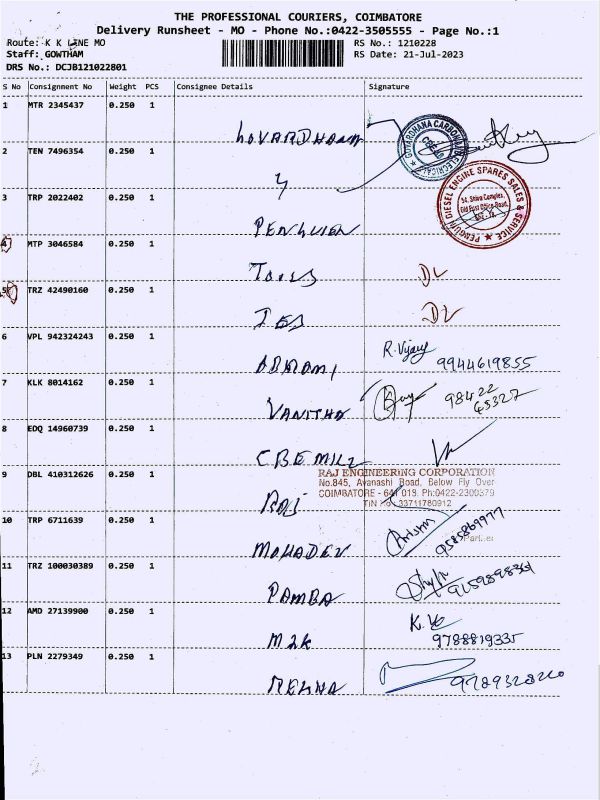 THE PROFESSIONAL COURIERS, COIMBATORE
Delivery Runsheet - MO - Phone No.:0422-3505555 - Page No.:1
Route: K K LINE MO
RS No.: 1210228
Staff: GOWTHAM
RS Date: 21-Jul-2023
DRS No.: DCJB121022801
S No Consignment No Weight PCS Consignee Details Signature
1 MTR 2345437 0.250 1
GOVARDHANA CARBON ELECTRICAL
2 TEN 7496354 0.250 1
PENGUIN DIESEL ENGINE SPARES SALES & SERVICE
54, Shiva Complex,
3 TRP 2022402 0.250 1
PENGUIEN
4 MTP 3046584 0.250 1
TOOLS DL
5 TRZ 42490160 0.250 1
DL
6 VPL 942324243 0.250 1
R. Vijay 9944619855
7 KLK 8014162 0.250 1
VANITHA 98422 65327
8 EDQ 14960739 0.250 1
CBE MILL
RAJ ENGINEERING CORPORATION
9 DBL 410312626 0.250 1
No.845, Avanashi Road, Below Fly Over
COIMBATORE - 641 018. Ph:0422-2300379
TIN No. 33711780912
RAJ
10 TRP 6711639 0.250 1
Partner
MAHADEV 9585869977
11 TRZ 100030389 0.250 1
PAMBA
12 AMD 27139900 0.250 1
M2K 9788819335
13 PLN 2279349 0.250 1
MEHHA 9789328220